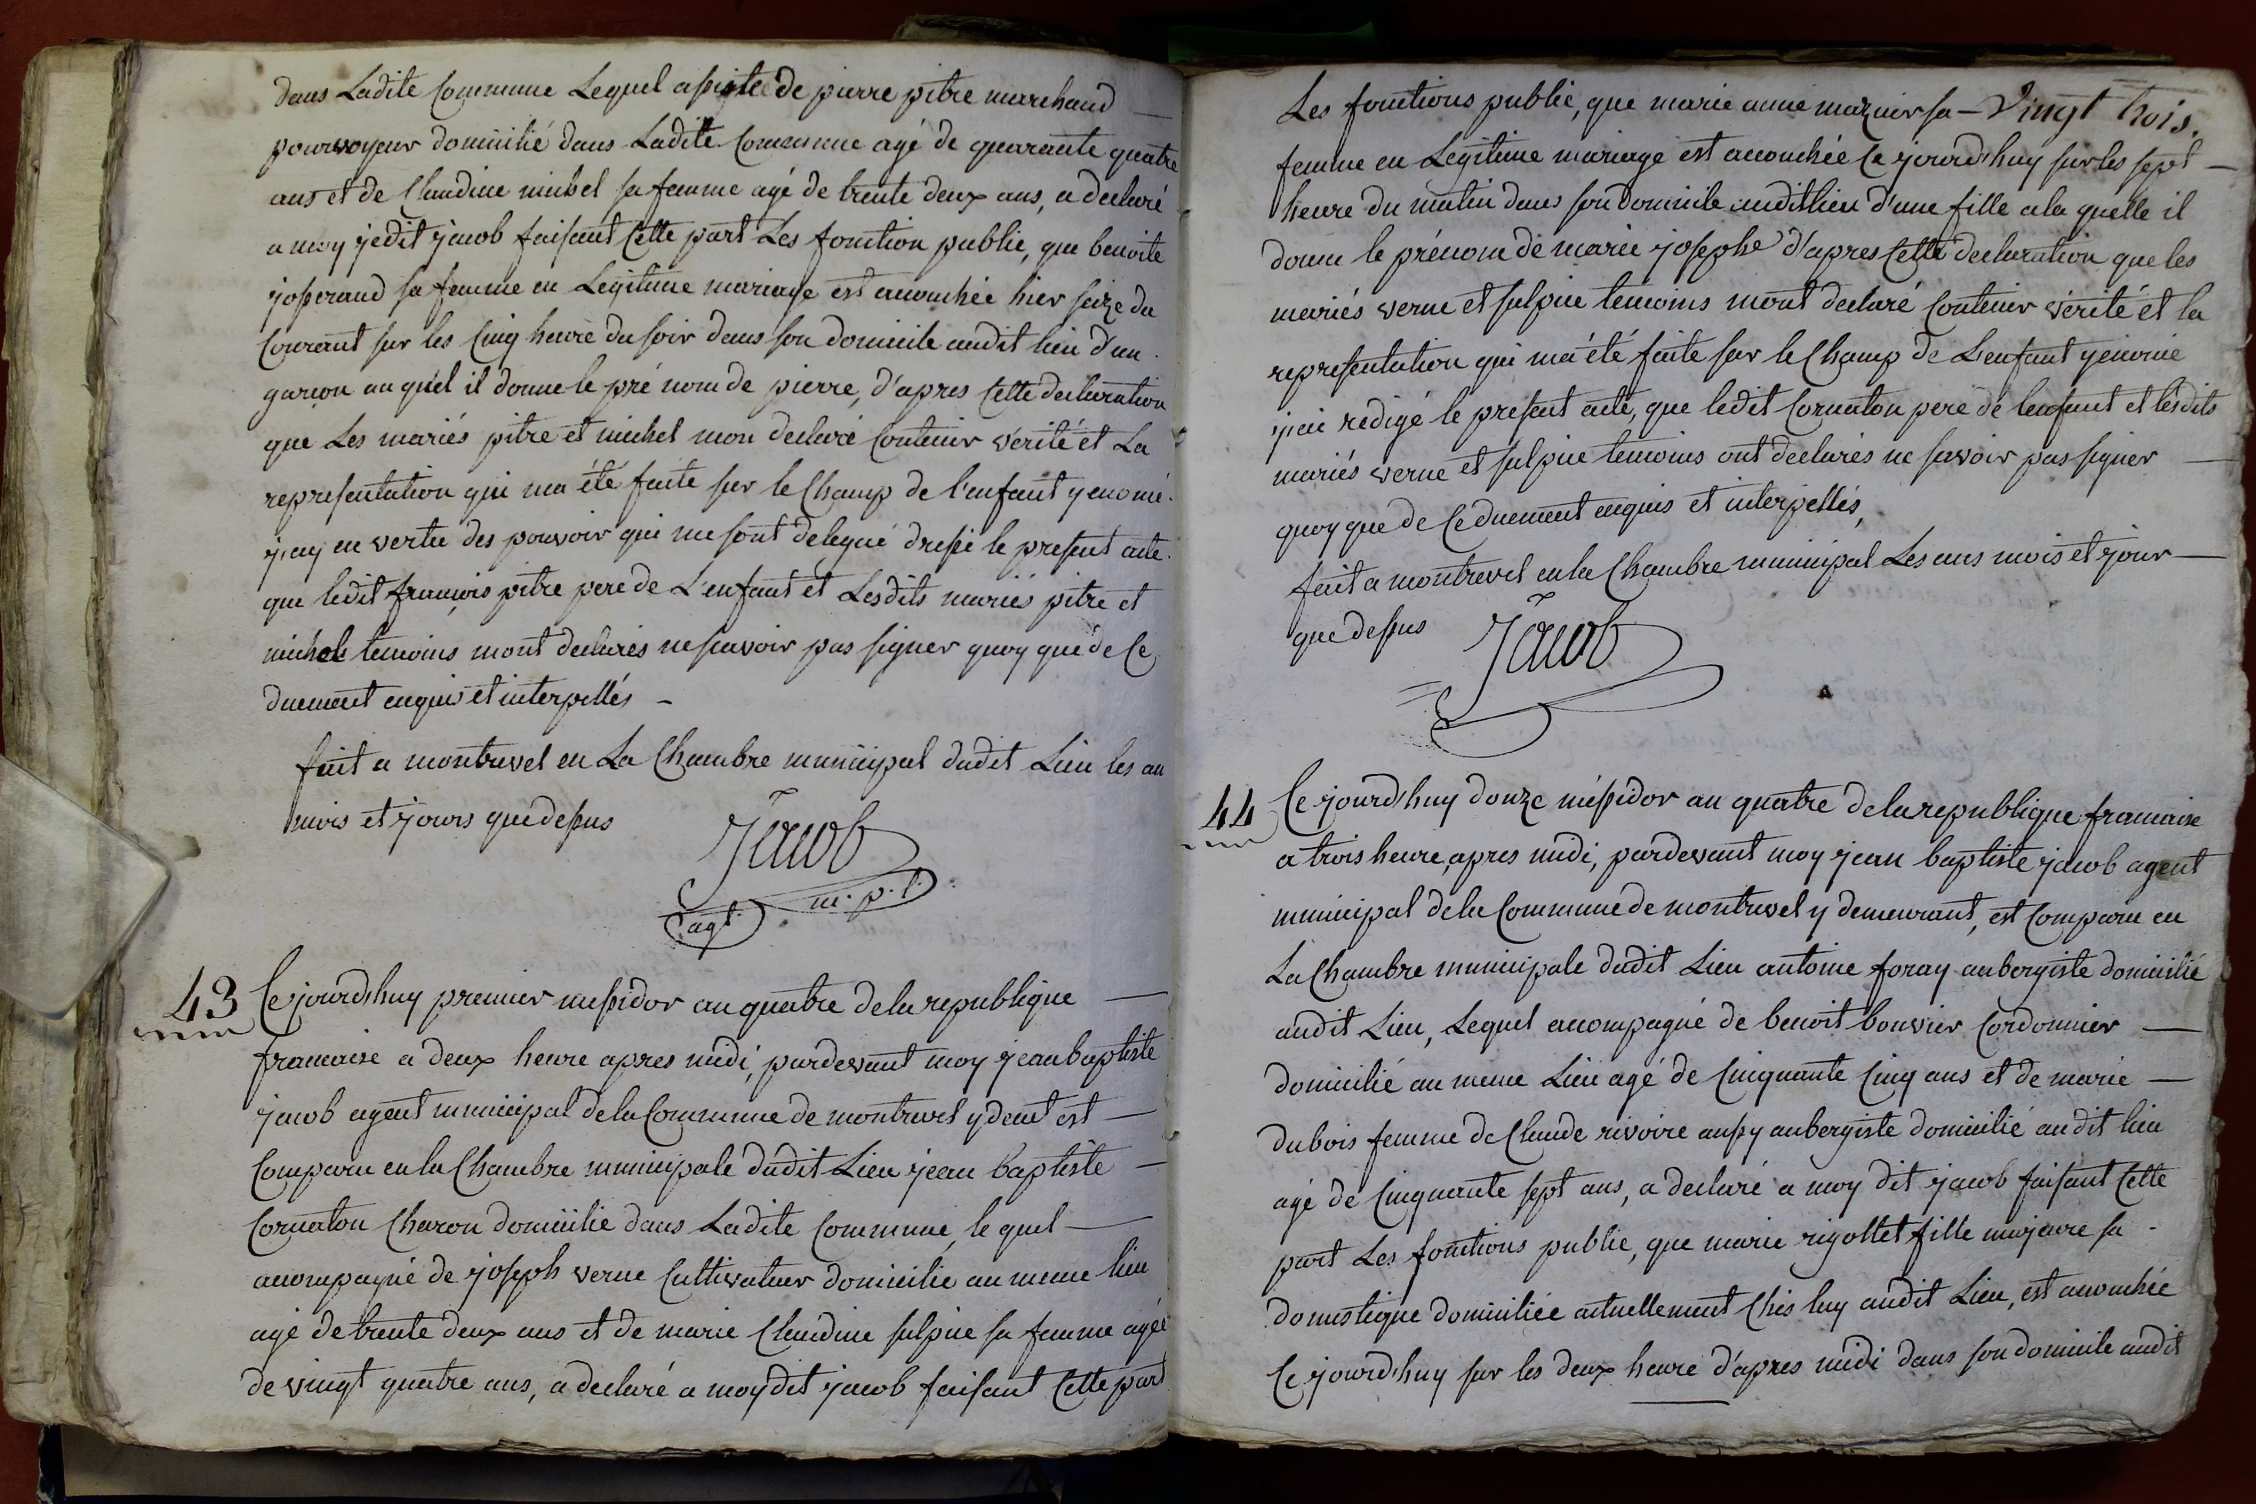 dans Ladite Commune Lequel assisté de pierre pitre marchand
pourvoyeur domicilié dans Ladite Commune agé de quarante quatre
ans et de Claudine michel sa femme agé de trente deux ans, a declaré
a moy jedit jacob faisant Cette part Les fonction public, que benoite
josserand sa femme en Legitime mariage est acouchée hier seize du
Courant sur les Cinq heure du soir dans son domicile audit lieu d'un
garçon au quel il donne le pré nom de pierre, d'apres Cette declaration
que Les mariés pitre et michel mon declaré Contenir verité et La
representation qui ma été faite sur le Champ de l'enfant y enomé
j'ay en vertu des pouvoir qui me sont delegué dressé le present acte
que ledit françois pitre pere de L'enfant et Lesdits mariés pitre et
michel temoins mont declarés ne scavoir pas signer quoy que de Ce
duement enquis et interpellés
fait a montrevel en La Chambre municipal dudit Lieu les an
mois et jours que dessus
Jacob
agt. m. p. l.
43 Ce jourd'huy premier messidor an quatre de la republique
francaise a deux heure apres midi, pardevant moy jean baptiste
jacob agent municipal de la Commune de montrevel y demt est
Comparu en la Chambre municipale dudit Lieu jean baptiste
Cornaton Charon domicilié dans Ladite Commune, le quel
acompagné de joseph verne Cultivateur domicilié au meme lieu
agé de trente deux ans et de marie Claudine sulpice sa femme agée
de vingt quatre ans, a declaré a moy dit jacob faisant Cette part
Vingt trois.
Les fonctions public, que marie anne mazuir sa
femme en Legitime mariage est acouchée Ce jourd'huy sur les sept
heure du matin dans son domicile audit lieu d'une fille a la quelle il
donne le prénom de marie josephe d'apres Cette declaration que les
mariés verne et sulpice temoins mont declaré Contenir vérité et la
representation qui ma été faite sur le Champ de L'enfant y enomé
j'ai redigé le present acte, que ledit Cornaton pere de lenfant et lesdits
mariés verne et sulpice temoins ont declarés ne savoir pas signer
quoy que de Ce duement enquis et interpellés,
fait a montrevel en la Chambre municipal Les ans mois et jour
que dessus
Jacob
44 Ce jourd'huy douze messidor an quatre de la republique francaise
a trois heure, apres midi, pardevant moy jean baptiste jacob agent
municipal de la Commune de montrevel y demeurant, est Comparu en
La Chambre municipale dudit Lieu antoine foray aubergiste domicilié
audit Lieu, Lequel acompagné de benoit bouvier Cordonnier
domicilié au meme Lieu agé de Cinquante Cinq ans et de marie
dubois femme de Claude rivoire aussy aubergiste domicilié audit lieu
agé de Cinquante sept ans, a declaré a moy dit jacob faisant Cette
part Les fonctions public, que marie rigottet fille majeure sa
domestique domiciliée actuellement Chés luy audit Lieu, est acouchée
Ce jourd'huy sur les deux heure d'apres midi dans son domicile audit